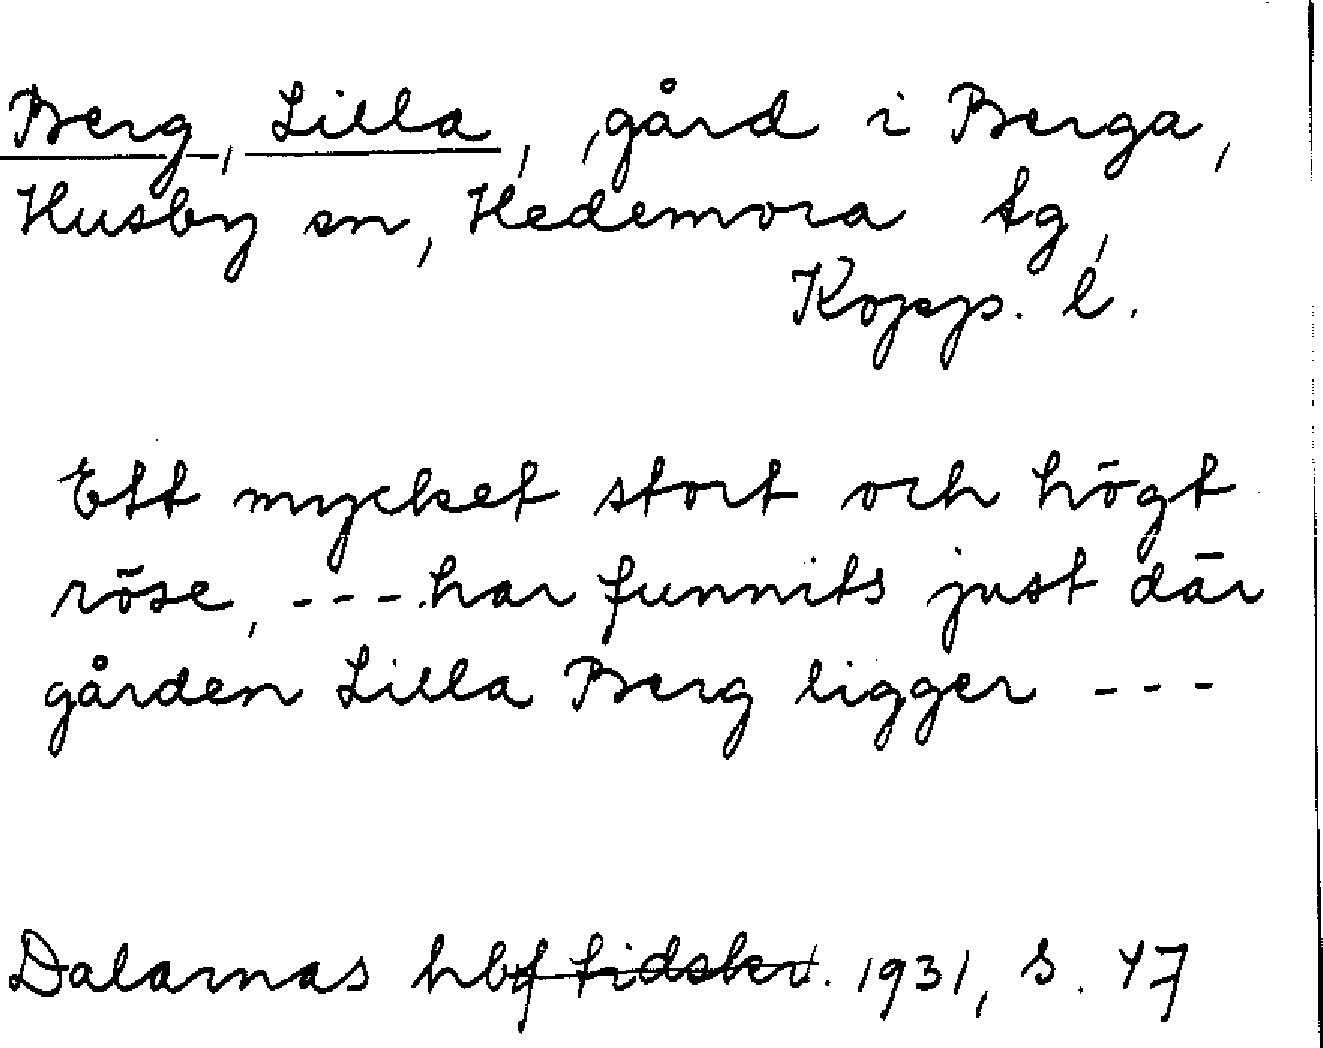 Berg, Lilla, gård i Berga,
Husby sn, Hedemora tg,
Kopp. l.
Ett mycket stort och högt
röse, --- har funnits just där
gården Lilla Berg ligger ---
Dalarnas hbf tidskr. 1931, s. 47